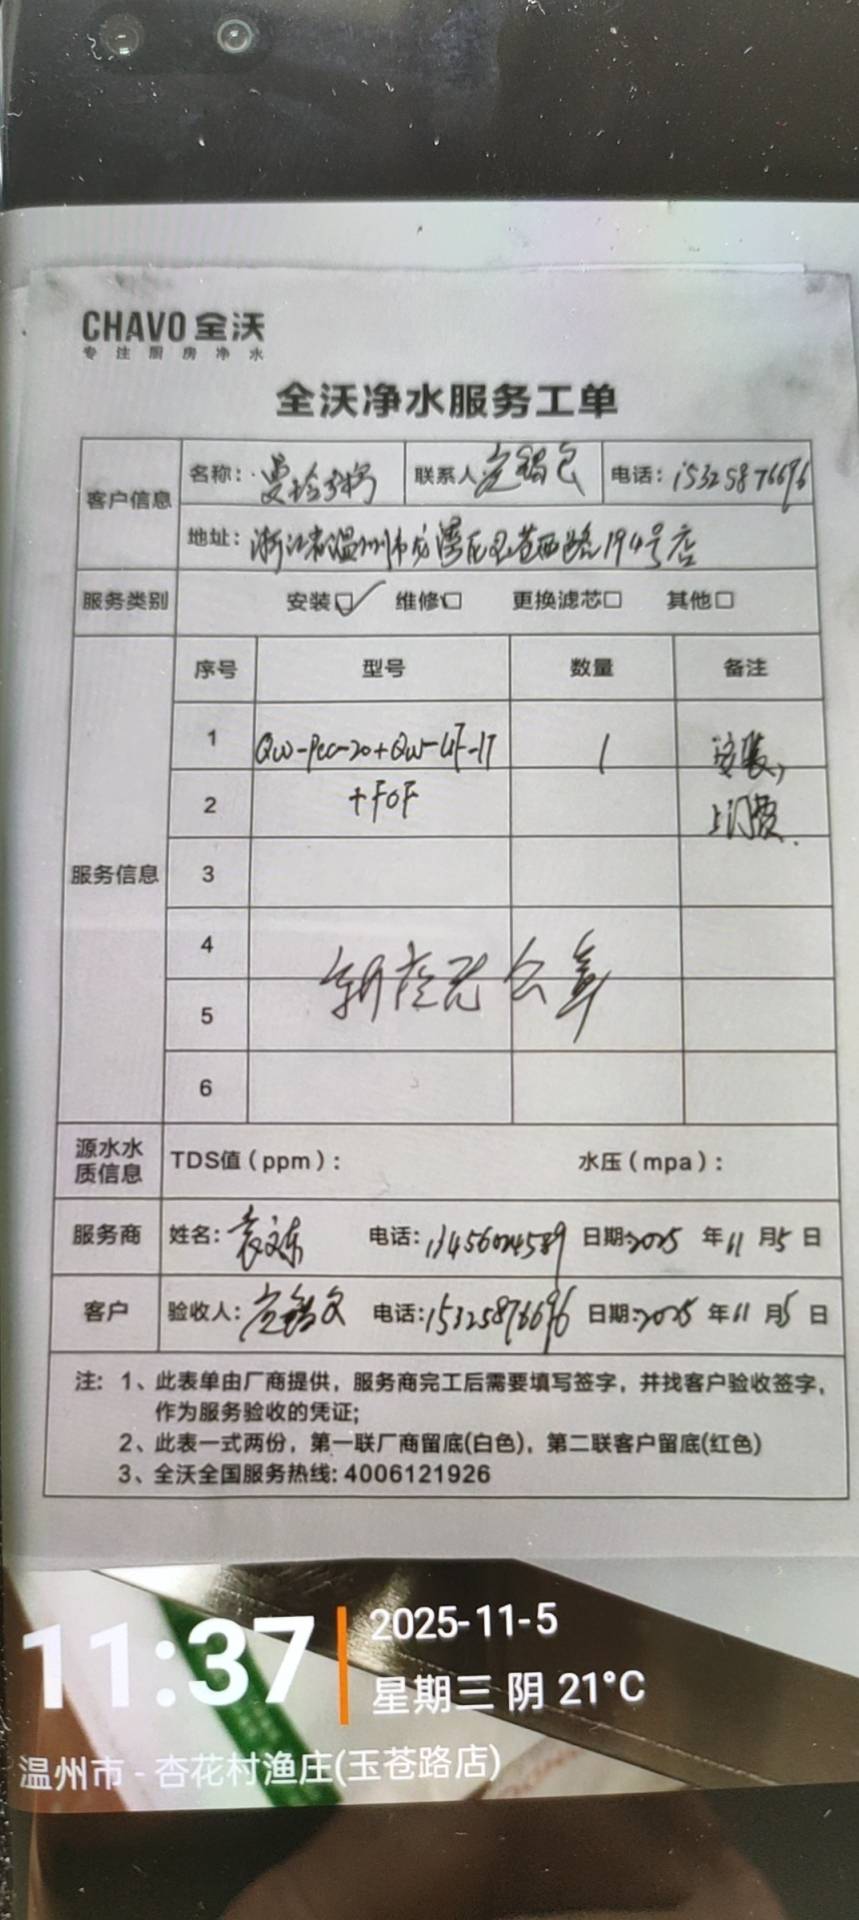 CHAVO 全沃
专注厨房净水
全沃净水服务工单
客户信息 名称: 联系人 电话: 15325876696
地址: 浙江省温州市龙湾区玉苍西路194号店
服务类别 安装☑ 维修□ 更换滤芯□ 其他□
序号 型号 数量 备注
服务信息
1 QW-Pec-20+QW-UF-1T 1 安装,
2 +FOF 上门费.
3
4
5
6
源水水质信息 TDS值(ppm): 水压(mpa):
服务商 姓名: 袁文东 电话: 13456024589 日期: 2025 年 11 月 5 日
客户 验收人: 电话: 15325876696 日期: 2025 年 11 月 5 日
注: 1、此表单由厂商提供,服务商完工后需要填写签字,并找客户验收签字,
作为服务验收的凭证;
2、此表一式两份,第一联厂商留底(白色),第二联客户留底(红色)
3、全沃全国服务热线: 4006121926
11:37
2025-11-5
星期三 阴 21°C
温州市 - 杏花村渔庄(玉苍路店)